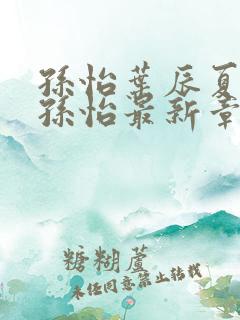 孫怡葉辰夏
孫怡最新章
糖糊蘆
未任同意禁止转载